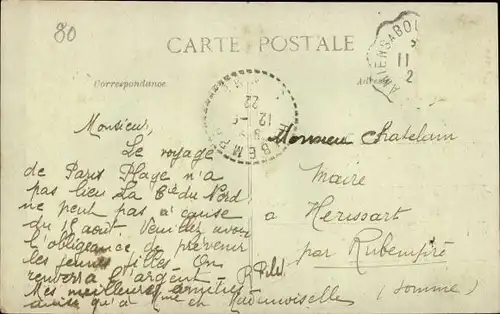 80
CARTE POSTALE
Correspondance
AMIENS A BOU
11
2
22
12-
Monsieur,
Le voyage
de Paris Plage n'a
pas lieu La Cie du Nord
ne peut pas à cause
du 15 août. Veuillez avoir
l'obligeance de prévenir
les jeunes filles. On
renverra l'argent.
Mes meilleures amitiés
ainsi qu'à Mme et Mademoiselle
Monsieur Chatelain
Maire
à Herissart
par Rubempré
(Somme)